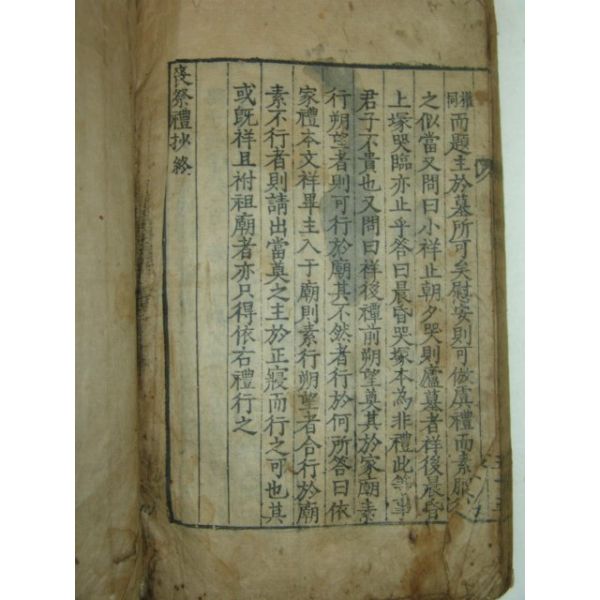 權同而題主於墓所可矣慰安則可倣虞禮而素耶
之似當又問曰小祥止朝夕哭則廬墓者祥後晨昏
上塚哭臨亦止乎答曰晨昏哭塚本為非禮此等事
君子不貴也又問曰祥後禫前朔望奠其於家廟素
行朔望者則可行於廟其不然者行於何所答曰依
家禮本文祥畢主入于廟則素行朔望者合行於廟
素不行者則請出當奠之主於正寢而行之可也其
或旣祥且祔祖廟者亦只得依右禮行之
喪祭禮抄終